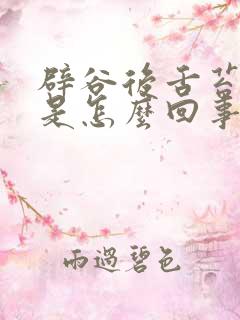 辟谷後舌苔
是怎麼回事
雨過碧色